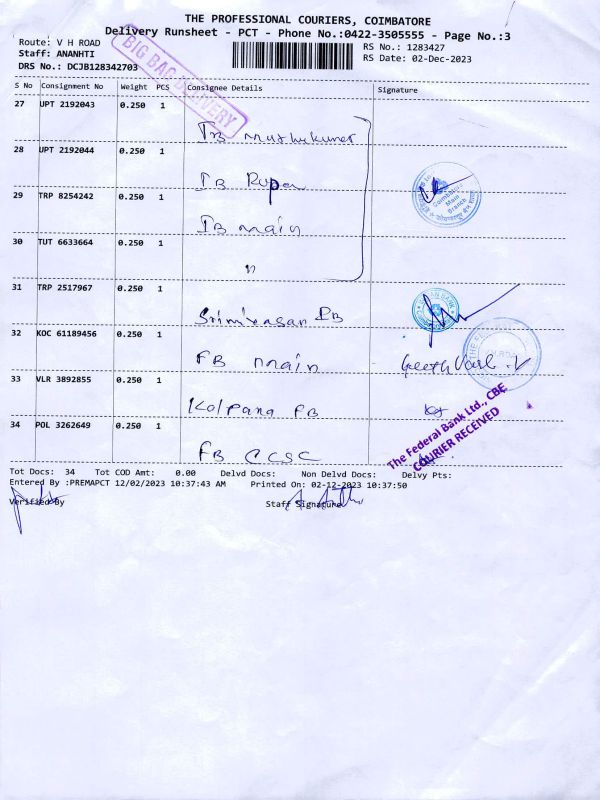 THE PROFESSIONAL COURIERS, COIMBATORE
Delivery Runsheet - PCT - Phone No.:0422-3505555 - Page No.:3
Route: V H ROAD
RS No.: 1283427
Staff: ANANHTI
RS Date: 02-Dec-2023
DRS No.: DCJB128342703
BIG BAG DELIVERY
S No Consignment No Weight PCS Consignee Details Signature
27 UPT 2192043 0.250 1
IB Muthukumar
28 UPT 2192044 0.250 1
IB Rupa
29 TRP 8254242 0.250 1
IB main
30 TUT 6633664 0.250 1
n
31 TRP 2517967 0.250 1
Srinivasan IB
32 KOC 61189456 0.250 1
FB main
33 VLR 3892855 0.250 1
Kalpana FB
34 POL 3262649 0.250 1
FB CCSC
Coimbatore
Main
Branch
The Federal Bank Ltd., CBE
COURIER RECEIVED
Tot Docs: 34 Tot COD Amt: 0.00 Delvd Docs: Non Delvd Docs: Delvy Pts:
Entered By :PREMAPCT 12/02/2023 10:37:43 AM Printed On: 02-12-2023 10:37:50
Verified By Staff Signature